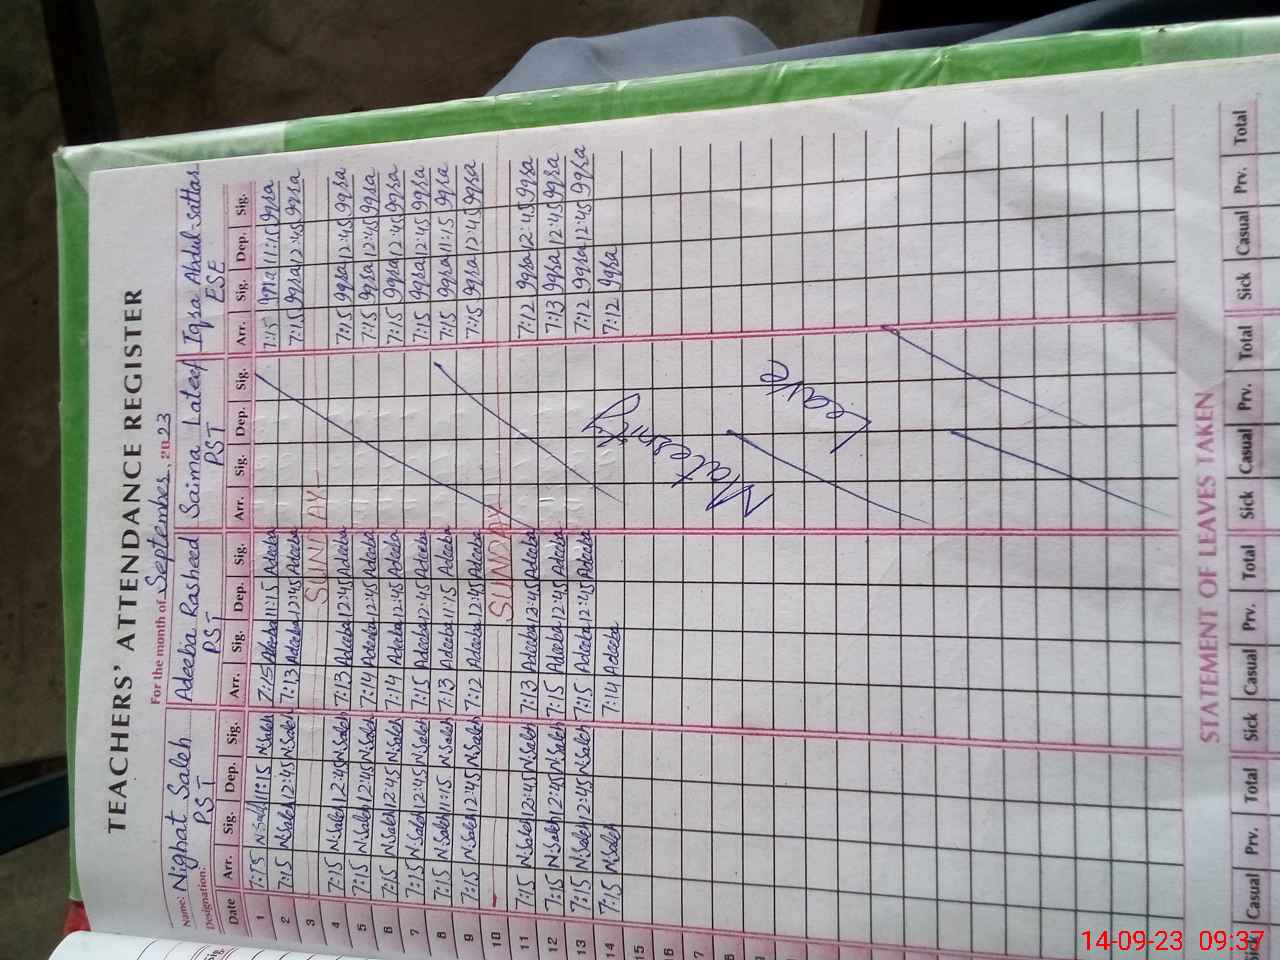 TEACHERS' ATTENDANCE REGISTER
For the month of September, 2023
Name: Nighat Saleh Adeeba Rasheed Saima Lateef Iqra Abdul-Sattar
Designation: PST PST PST ESE
Date Arr. Sig. Dep. Sig. Arr. Sig. Dep. Sig. Arr. Sig. Dep. Sig. Arr. Sig. Dep. Sig.
1 7:15 NSaleh 11:15 NSaleh 7:15 Adeeba 11:15 Adeeba 7:15 Iqra 11:15 Iqra
2 7:15 NSaleh 12:45 NSaleh 7:13 Adeeba 12:45 Adeeba 7:15 Iqra 12:45 Iqra
3 SUNDAY
4 7:15 NSaleh 12:45 NSaleh 7:13 Adeeba 12:45 Adeeba 7:15 Iqra 12:45 Iqra
5 7:15 NSaleh 12:45 NSaleh 7:14 Adeeba 12:45 Adeeba 7:15 Iqra 12:45 Iqra
6 7:15 NSaleh 12:45 NSaleh 7:14 Adeeba 12:45 Adeeba 7:15 Iqra 12:45 Iqra
7 7:15 NSaleh 12:45 NSaleh 7:15 Adeeba 12:45 Adeeba 7:15 Iqra 12:45 Iqra
8 7:15 NSaleh 11:15 NSaleh 7:13 Adeeba 11:15 Adeeba 7:15 Iqra 11:15 Iqra
9 7:15 NSaleh 12:45 NSaleh 7:12 Adeeba 12:45 Adeeba 7:15 Iqra 12:45 Iqra
10 SUNDAY
11 7:15 NSaleh 12:45 NSaleh 7:13 Adeeba 12:45 Adeeba 7:12 Iqra 12:45 Iqra
12 7:15 NSaleh 12:45 NSaleh 7:15 Adeeba 12:45 Adeeba 7:13 Iqra 12:45 Iqra
13 7:15 NSaleh 12:45 NSaleh 7:15 Adeeba 12:45 Adeeba 7:12 Iqra 12:45 Iqra
14 7:15 NSaleh 7:14 Adeeba 7:12 Iqra
15
Maternity
Leave
STATEMENT OF LEAVES TAKEN
Sick Casual Prv. Total Sick Casual Prv. Total Sick Casual Prv. Total Sick Casual Prv. Total
14-09-23 09:37